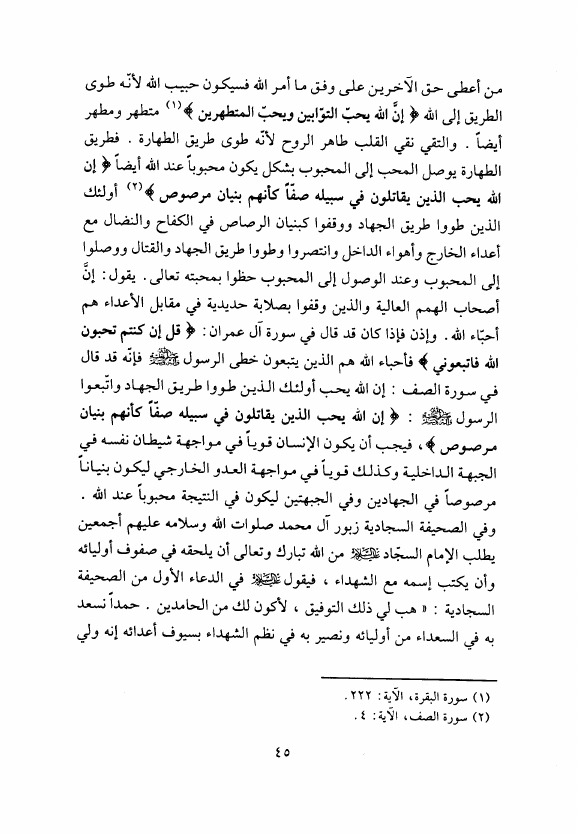 من أعطى حق الآخرين على وفق ما أمر الله فسيكون حبيب الله لأنّه طوى
الطريق إلى الله ﴿ إنَّ الله يحبّ التوّابين ويحبّ المتطهرين ﴾(١) متطهر ومطهر
أيضاً . والتقي نقي القلب طاهر الروح لأنّه طوى طريق الطهارة . فطريق
الطهارة يوصل المحب إلى المحبوب بشكل يكون محبوباً عند الله أيضاً ﴿ إن
الله يحب الذين يقاتلون في سبيله صفّاً كأنهم بنيان مرصوص ﴾(٢) أولئك
الذين طووا طريق الجهاد ووقفوا كبنيان الرصاص في الكفاح والنضال مع
أعداء الخارج وأهواء الداخل وانتصروا وطووا طريق الجهاد والقتال ووصلوا
إلى المحبوب وعند الوصول إلى المحبوب حظوا بمحبته تعالى. يقول: إنَّ
أصحاب الهمم العالية والذين وقفوا بصلابة حديدية في مقابل الأعداء هم
أحبّاء الله. وإذن فإذا كان قد قال في سورة آل عمران: ﴿ قل إن كنتم تحبون
الله فاتبعوني ﴾ فأحباء الله هم الذين يتبعون خطى الرسول ﷺ فإنّه قد قال
في سورة الصف : إن الله يحب أولئك الذين طووا طريق الجهاد واتّبعوا
الرسول ﷺ : ﴿ إن الله يحب الذين يقاتلون في سبيله صفّاً كأنهم بنيان
مرصوص ﴾، فيجب أن يكون الإنسان قوياً في مواجهة شيطان نفسه في
الجبهة الداخلية وكذلك قوياً في مواجهة العدو الخارجي ليكون بنياناً
مرصوصاً في الجهادين وفي الجبهتين ليكون في النتيجة محبوباً عند الله .
وفي الصحيفة السجادية زبور آل محمد صلوات الله وسلامه عليهم أجمعين
يطلب الإمام السجّاد عليه السلام من الله تبارك وتعالى أن يلحقه في صفوف أوليائه
وأن يكتب إسمه مع الشهداء ، فيقول عليه السلام في الدعاء الأول من الصحيفة
السجادية : « هب لي ذلك التوفيق ، لأكون لك من الحامدين . حمداً نسعد
به في السعداء من أوليائه ونصير به في نظم الشهداء بسيوف أعدائه إنه ولي
(١) سورة البقرة، الآية: ٢٢٢.
(٢) سورة الصف، الآية: ٤.
٤٥